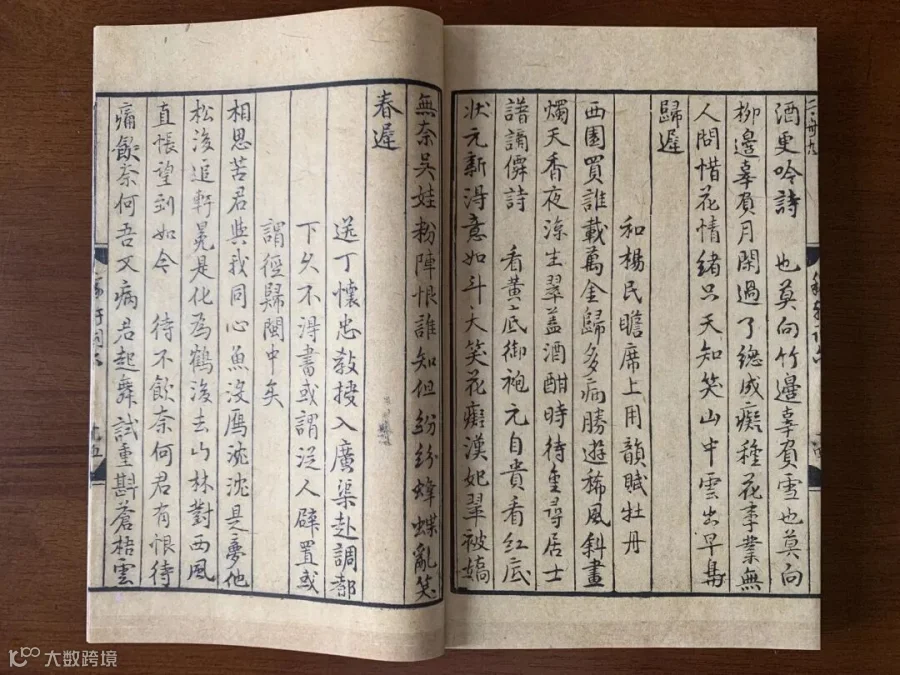 酒更吟詩　也莫向竹邊辜負雪也莫向
柳邊辜負月閑過了總成癡種花事業無
人問惜花情緒只天知笑山中雲出早鳥
歸遲
和楊民瞻席上用韻賦牡丹
西園買誰載萬金歸多病勝遊稀風斜畫
燭天香夜涼生翠蓋酒酣時待重尋居士
譜謫僊詩　看黃底御袍元自貴看紅底
狀元新得意如斗大笑花癡漢妃翠被嬌
無奈吳娃粉陣恨誰知但紛紛蜂蝶亂笑
春遲
送丁懷忠教授入廣渠赴調都
下久不得書或謂從人辟置或
謂徑歸閩中矣
相思苦君與我同心魚沒鴈沈沈是夢他
松後追軒冕是化為鶴後去山林對西風
直悵望到如今　待不飲奈何君有恨待
痛飲奈何吾又病君起舞試重斟蒼梧雲
大数跨境